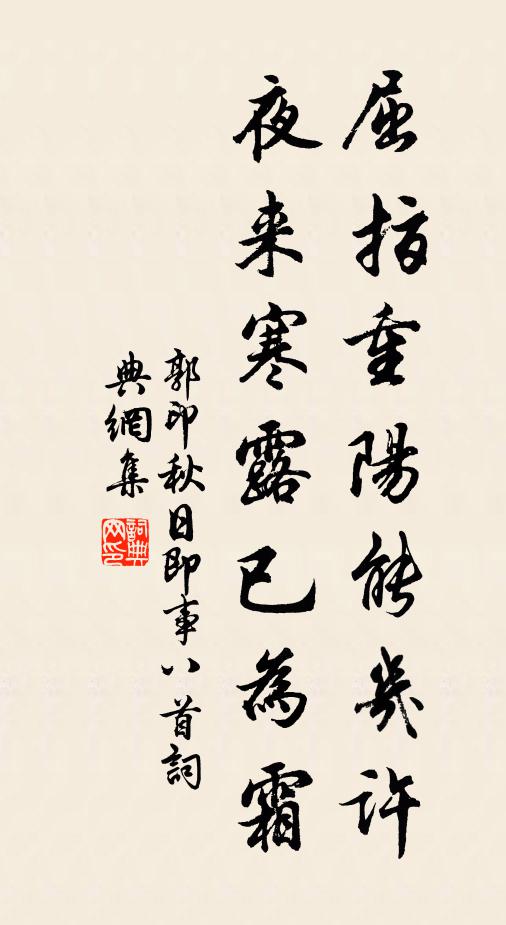 屈指重陽能幾許
夜来寒露已為霜
郭印秋日即事八首詞
典網集
詞典网印